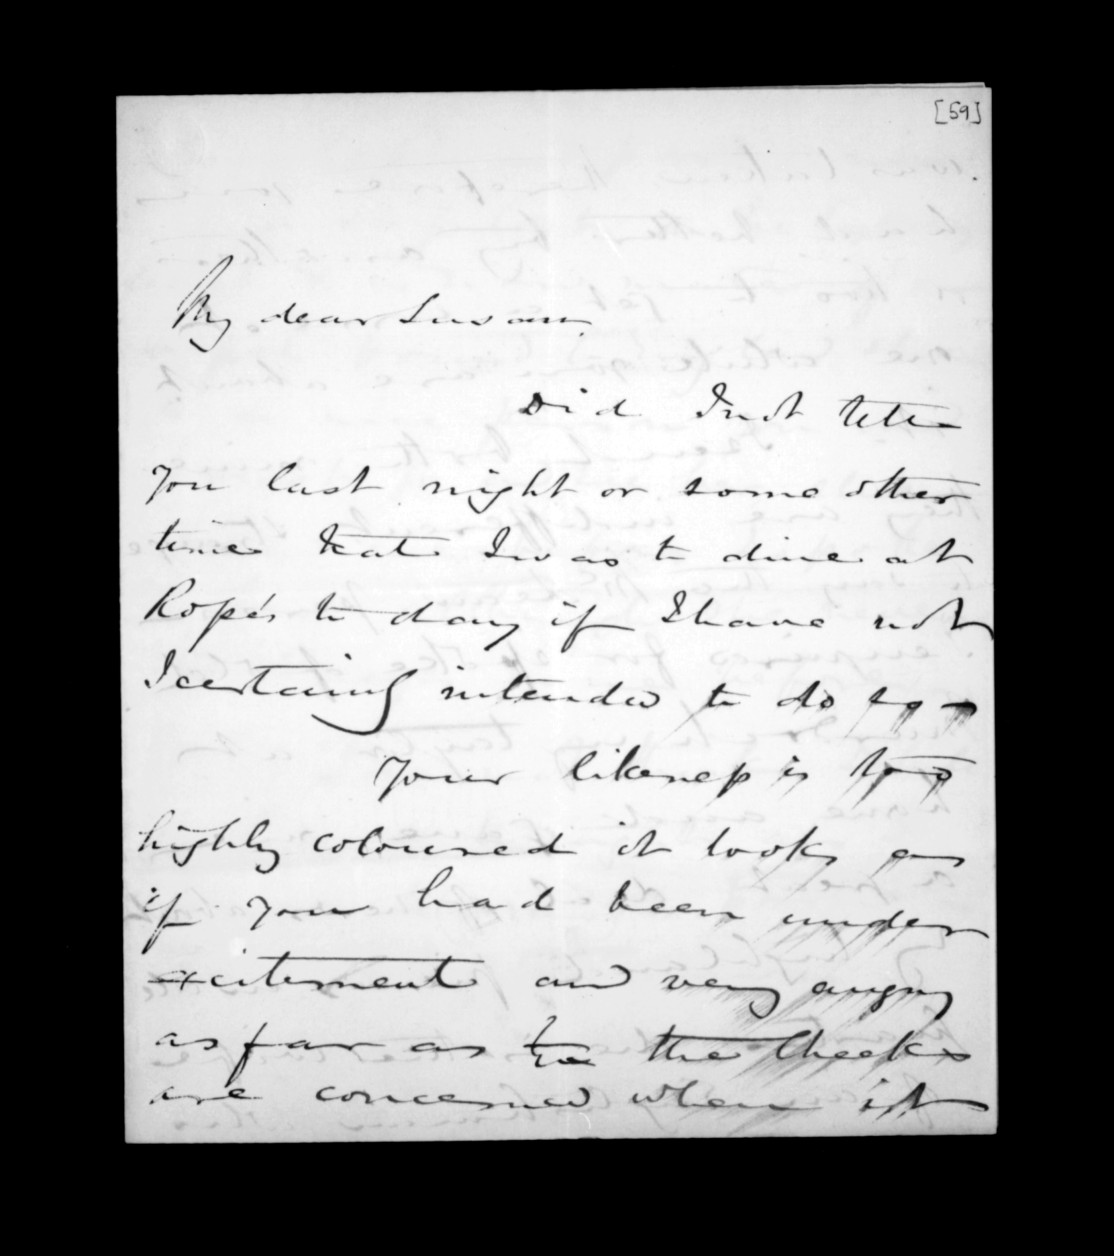 [59]
My dear Susan,
Did I not tell
you last night or some other
time that I was to dine at
Rope's to day if I have not
I certainly intended to do so -
Your likeness is too
highly coloured it looks as
if you had been under
excitement and very angry
as far as the Cheeks
are concerned when it